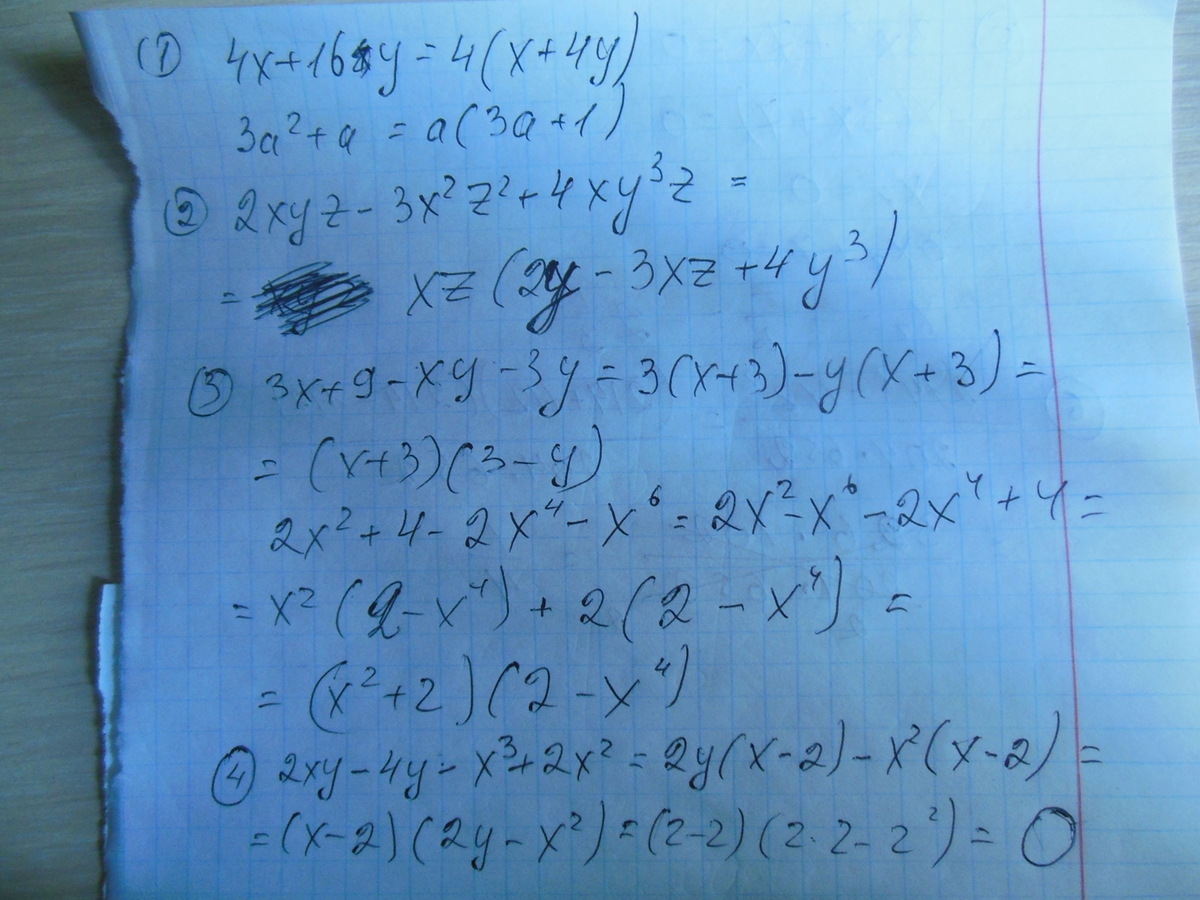 ① 4x+16y=4(x+4y)
3a²+a = a(3a+1)
② 2xyz-3x²z²+4xy³z =
= xz(2y-3xz+4y³)
③ 3x+9-xy-3y=3(x+3)-y(x+3)=
= (x+3)(3-y)
2x²+4-2x⁴-x⁶=2x²-x⁶-2x⁴+4=
= x²(2-x⁴)+2(2-x⁴) =
= (x²+2)(2-x⁴)
④ 2xy-4y-x³+2x²=2y(x-2)-x²(x-2)=
=(x-2)(2y-x²)=(2-2)(2·2-2²)=0